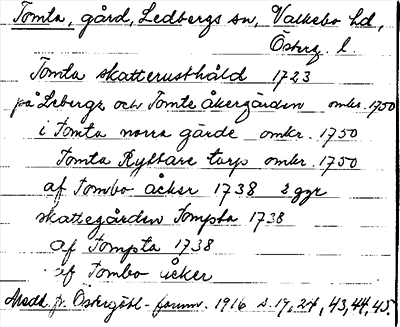 Tomta, gård, Ledbergs sn, Valkebo hd,
Österg. l.
Tomta skatterusthåld 1723
på Lebergs och Tomte åkergärden omkr. 1750
i Tomta norra gärde omkr. 1750
Tomta Ryttare torp omkr. 1750
af Tombo åcker 1738 2 ggr
skattegården Tompta 1738
af Tompta 1738
af Tombo åcker
Medd. fr. Östergötl. forum. 1916 s. 19, 24, 43, 44, 45.